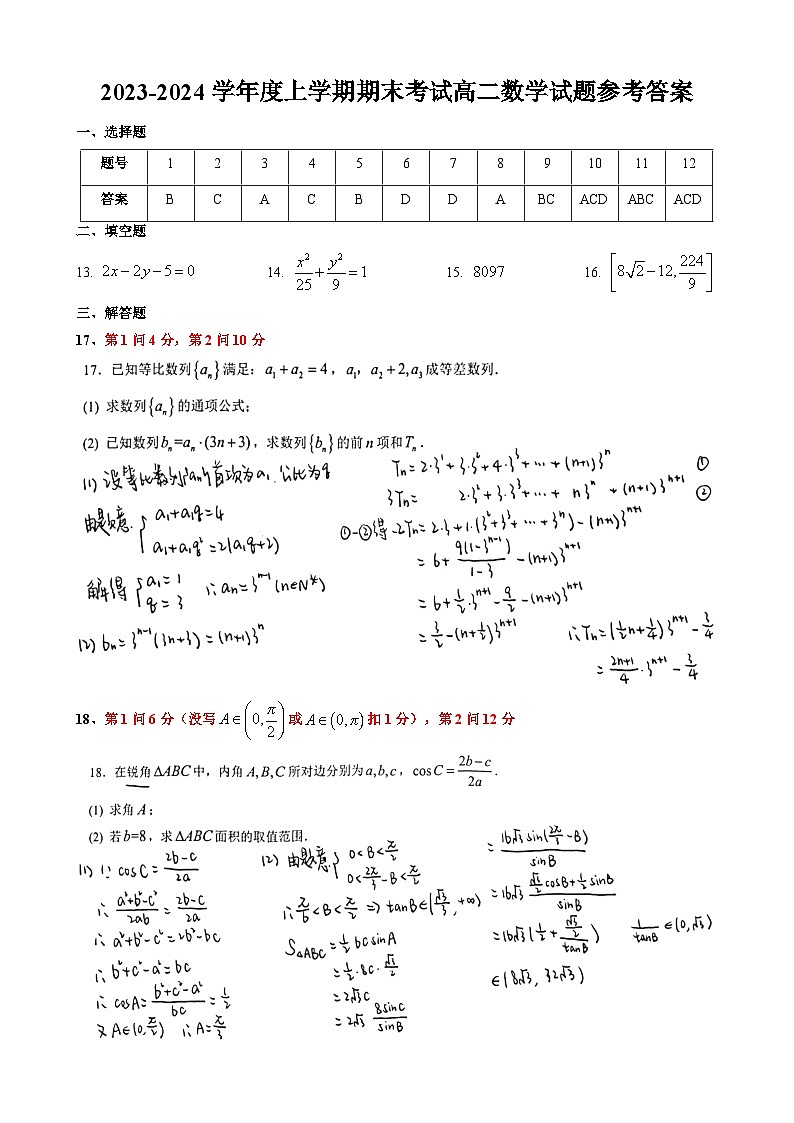 2023-2024 学年度上学期期末考试高二数学试题参考答案
一、选择题
题号 1 2 3 4 5 6 7 8 9 10 11 12
答案 B C A C B D D A BC ACD ABC ACD
二、填空题
13. 2x−2y−5=0 14. x²/25+y²/9=1 15. 8097 16. [8√2−12, 224/9]
三、解答题
17、第1问4分，第2问10分
17. 已知等比数列{aₙ}满足：a₁+a₂=4，a₁，a₂+2,a₃成等差数列.
(1) 求数列{aₙ}的通项公式；
(2) 已知数列bₙ=aₙ·(3n+3)，求数列{bₙ}的前n项和Tₙ.
(1) 设等比数列{aₙ}首项为a₁, 公比为q
由题意 { a₁+a₁q=4
a₁+a₁q²=2(a₁q+2)
解得 { a₁=1
q=3 ∴aₙ=3ⁿ⁻¹(n∈N*)
(2) bₙ=3ⁿ⁻¹(3n+3)=(n+1)3ⁿ
Tₙ=2·3¹+3·3²+4·3³+…+(n+1)3ⁿ ①
3Tₙ= 2·3²+3·3³+…+ n3ⁿ +(n+1)3ⁿ⁺¹ ②
①-②得 -2Tₙ=2·3+1·(3²+3³+…+3ⁿ)-(n+1)3ⁿ⁺¹
=6+9(1-3ⁿ⁻¹)/(1-3) -(n+1)3ⁿ⁺¹
=6+1/2·3ⁿ⁺¹-9/2-(n+1)3ⁿ⁺¹
=3/2-(n+1/2)3ⁿ⁺¹ ∴Tₙ=(1/2n+1/4)3ⁿ⁺¹-3/4
=(2n+1)/4·3ⁿ⁺¹-3/4
18、第1问6分（没写A∈(0,π/2)或A∈(0,π)扣1分），第2问12分
18. 在锐角ΔABC中，内角A,B,C所对边分别为a,b,c，cosC=(2b−c)/2a.
(1) 求角A；
(2) 若b=8，求ΔABC面积的取值范围.
(1) ∵cosC=(2b-c)/2a
∴(a²+b²-c²)/2ab=(2b-c)/2a
∴a²+b²-c²=2b²-bc
∴b²+c²-a²=bc
∴cosA=(b²+c²-a²)/bc=1/2
又A∈(0,π/2) ∴A=π/3
(2) 由题意 { 0<B<π/2
0<2π/3-B<π/2
∴π/6<B<π/2 ⇒tanB∈(√3/3,+∞)
S△ABC=1/2bcsinA
=1/2·8c·√3/2
=2√3c
=2√3 8sinC/sinB
=16√3sin(2π/3-B)/sinB
=16√3 (√3/2cosB+1/2sinB)/sinB
=16√3(1/2+(√3/2)/tanB) 1/tanB∈(0,√3)
∈(8√3, 32√3)